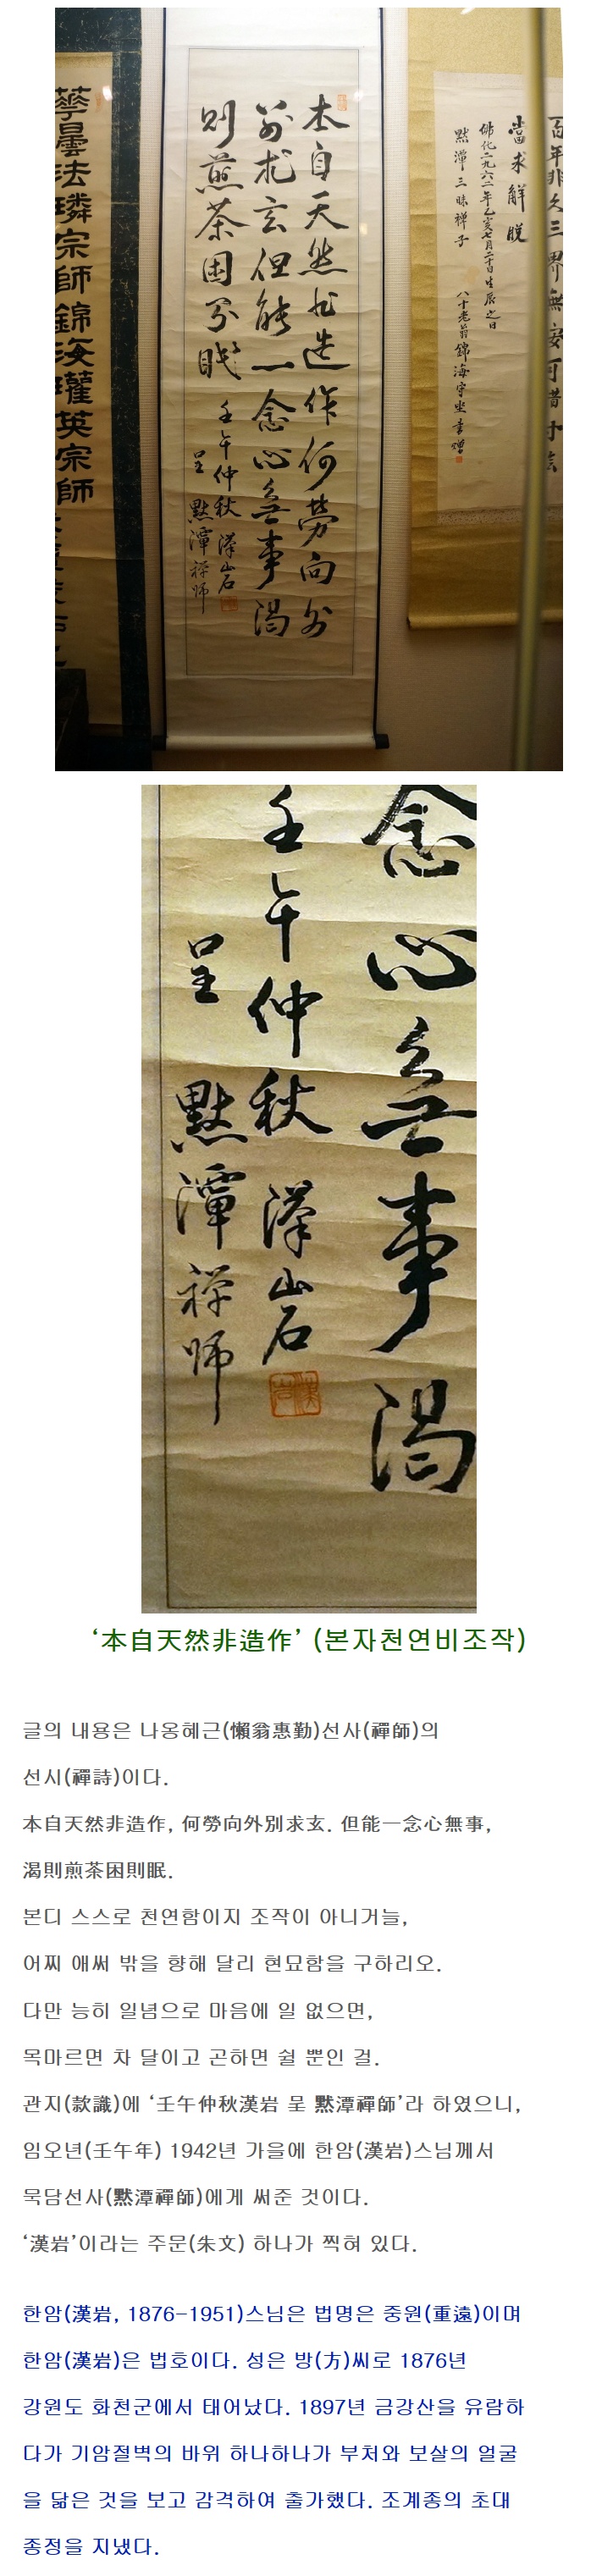 華曇法璘宗師 錦海瓘英宗師
本自天然非造作何勞向外
別求玄但能一念心無事渴
則煎茶困則眠
壬午仲秋 漢岩
呈 黙潭禪師
百年非久三界無安可惜寸陰
當求解脫
佛化二九六二年乙亥七月二十日生辰之日
黙潭三昧禪子
八十老翁錦海守坐書贈
念心無事渴
壬午仲秋 漢岩
漢岩
呈 黙潭禪師
‘本自天然非造作’ (본자천연비조작)
글의 내용은 나옹혜근(懶翁惠勤)선사(禪師)의
선시(禪詩)이다.
本自天然非造作, 何勞向外別求玄. 但能一念心無事,
渴則煎茶困則眠.
본디 스스로 천연함이지 조작이 아니거늘,
어찌 애써 밖을 향해 달리 현묘함을 구하리오.
다만 능히 일념으로 마음에 일 없으면,
목마르면 차 달이고 곤하면 쉴 뿐인 걸.
관지(款識)에 ‘壬午仲秋漢岩 呈 黙潭禪師’라 하였으니,
임오년(壬午年) 1942년 가을에 한암(漢岩)스님께서
묵담선사(黙潭禪師)에게 써준 것이다.
‘漢岩’이라는 주문(朱文) 하나가 찍혀 있다.
한암(漢岩, 1876-1951)스님은 법명은 중원(重遠)이며
한암(漢岩)은 법호이다. 성은 방(方)씨로 1876년
강원도 화천군에서 태어났다. 1897년 금강산을 유람하
다가 기암절벽의 바위 하나하나가 부처와 보살의 얼굴
을 닮은 것을 보고 감격하여 출가했다. 조계종의 초대
종정을 지냈다.